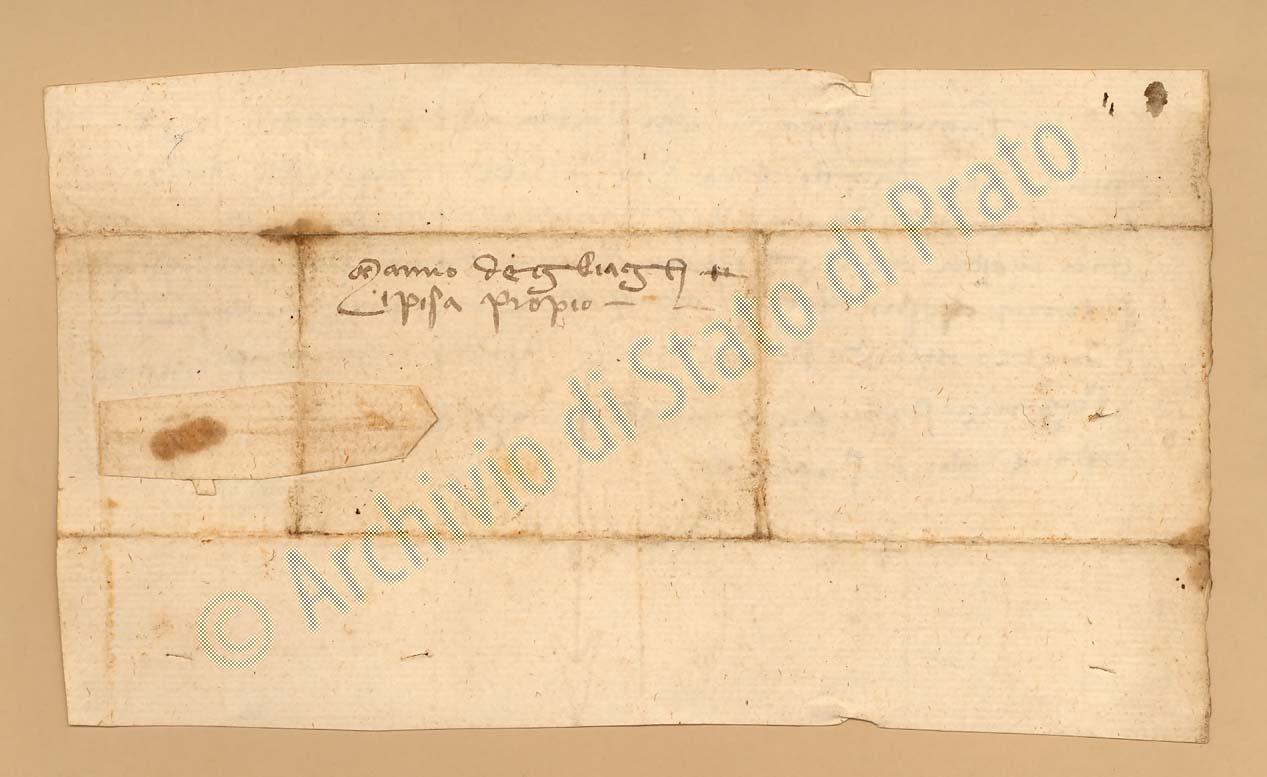 Manno degliagli
i pisa propio
© Archivio di Stato di Prato